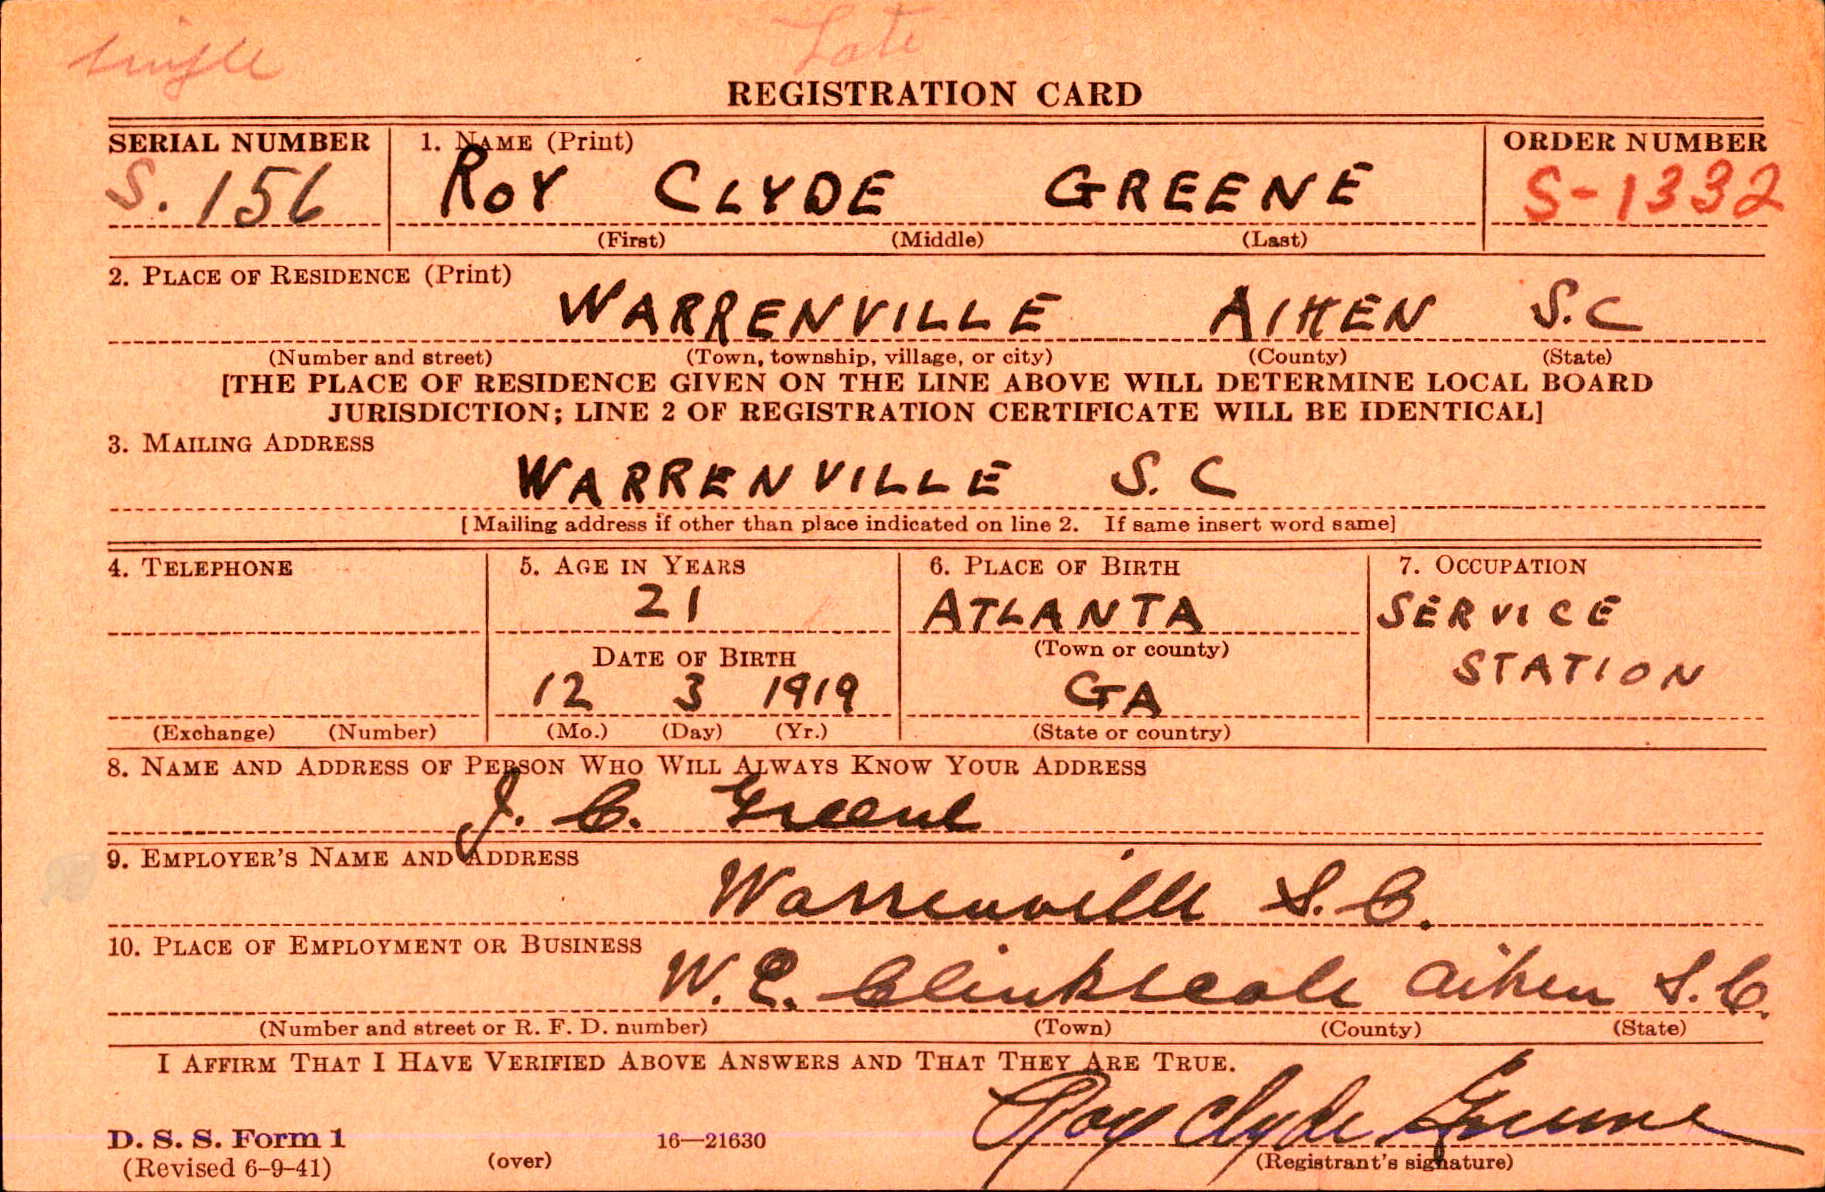 single Late
REGISTRATION CARD
SERIAL NUMBER 1. NAME (Print) ORDER NUMBER
S. 156 ROY CLYDE GREENE S-1332
(First) (Middle) (Last)
2. PLACE OF RESIDENCE (Print)
WARRENVILLE AIKEN S.C
(Number and street) (Town, township, village, or city) (County) (State)
[THE PLACE OF RESIDENCE GIVEN ON THE LINE ABOVE WILL DETERMINE LOCAL BOARD
JURISDICTION; LINE 2 OF REGISTRATION CERTIFICATE WILL BE IDENTICAL]
3. MAILING ADDRESS
WARRENVILLE S. C
[Mailing address if other than place indicated on line 2. If same insert word same]
4. TELEPHONE 5. AGE IN YEARS 6. PLACE OF BIRTH 7. OCCUPATION
21 ATLANTA SERVICE
DATE OF BIRTH (Town or county)
12 3 1919 GA STATION
(Exchange) (Number) (Mo.) (Day) (Yr.) (State or country)
8. NAME AND ADDRESS OF PERSON WHO WILL ALWAYS KNOW YOUR ADDRESS
J. C. Greene
9. EMPLOYER'S NAME AND ADDRESS
Warrenville S. C.
10. PLACE OF EMPLOYMENT OR BUSINESS
W. E. Clinkscale Aiken S. C.
(Number and street or R. F. D. number) (Town) (County) (State)
I AFFIRM THAT I HAVE VERIFIED ABOVE ANSWERS AND THAT THEY ARE TRUE.
Roy Clyde Greene
D. S. S. Form 1 16—21630
(Revised 6-9-41) (over) (Registrant's signature)